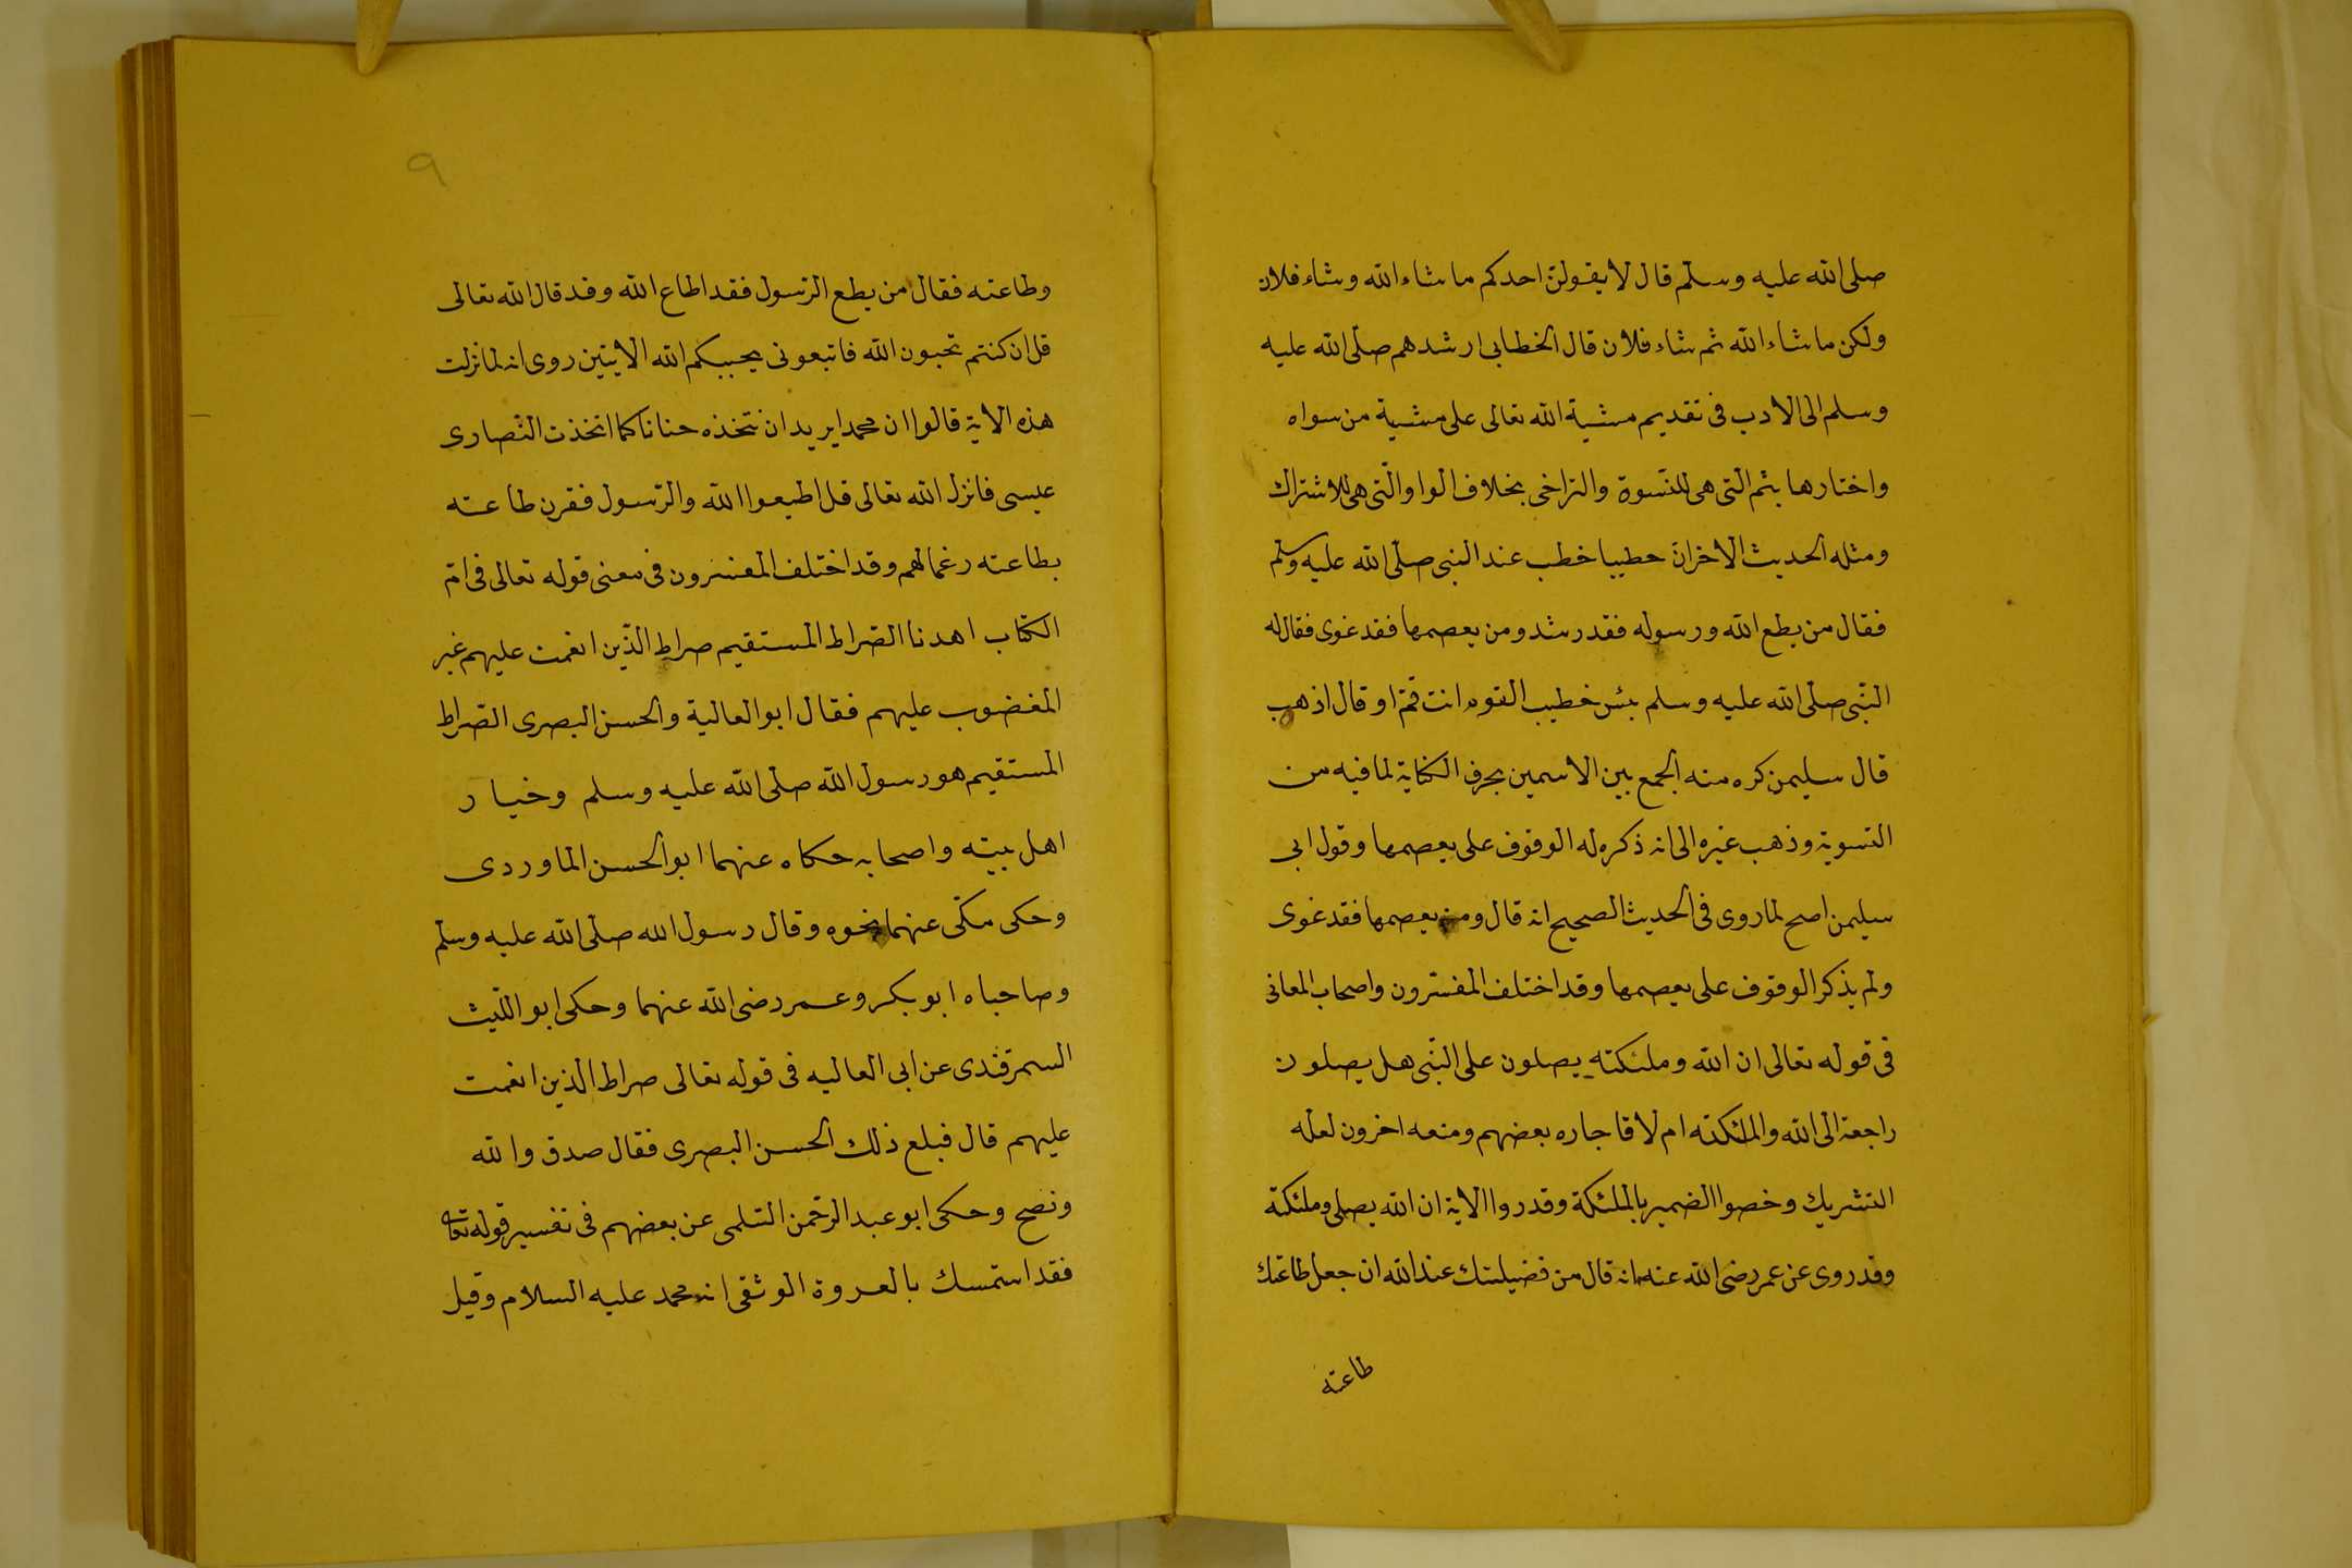 صلى الله عليه وسلّم قال لا يقولنّ احدكم ما شاء الله وشاء فلان
ولكن ما شاء الله ثم شاء فلان قال الخطابى ارشدهم صلّى الله عليه
وسلم الى الادب فى تقديم مشية الله تعالى على مشية من سواه
واختارها بثم التى هى للنسوة والتراخى بخلاف الواو التى هى للاشتراك
ومثله الحديث الاخر انّ خطيبا خطب عند النبى صلّى الله عليه وسلّم
فقال من يطع الله ورسوله فقد رشد ومن يعصمها فقد غوى فقال له
النّبى صلّى الله عليه وسلم بئس خطيب القوم انت قم او قال اذهب
قال سليمن كره منه الجمع بين الاسمين بحرف الكناية لما فيه من
التسوية وذهب غيره الى انه ذكره له الوقوف على يعصمها وقول ابى
سليمن اصح لما روى فى الحديث الصحيح انه قال ومن يعصمها فقد غوى
ولم يذكر الوقوف على يعصمها وقد اختلف المفسّرون واصحاب المعانى
فى قوله تعالى ان الله وملئكته يصلون على النّبى هل يصلون
راجعة الى الله والملئكته ام لا فاجاره بعضهم ومنعه اخرون لعله
التشريك وخصوا الضمير بالملئكة وقدروا الاية ان الله يصلى وملئكته
وقد روى عن عمر رضى الله عنه انه قال من فضيلتك عند الله ان جعل طاعتك
طاعته
٩
وطاعته فقال من يطع الرّسول فقد اطاع الله وقد قال الله تعالى
قل ان كنتم تحبون الله فاتبعونى يحببكم الله الايتين روى انه لما نزلت
هذه الاية قالوا ان محمدا يريد ان نتخذه حنانا كما اتخذت النّصارى
عيسى فانزل الله تعالى قل اطيعوا الله والرّسول فقرن طاعته
بطاعته رغما لهم وقد اختلف المفسرون فى معنى قوله تعالى فى امّ
الكتاب اهدنا الصّراط المستقيم صراط الّذين انعمت عليهم غير
المغضوب عليهم فقال ابو العالية والحسن البصرى الصّراط
المستقيم هو رسول الله صلّى الله عليه وسلم وخيار
اهل بيته واصحابه حكاه عنهما ابو الحسن الماوردى
وحكى مكّى عنهما نحوه وقال رسول الله صلّى الله عليه وسلّم
وصاحباه ابو بكر وعمر رضى الله عنهما وحكى ابو اللّيث
السمرقندى عن ابى العاليه فى قوله تعالى صراط الذين انعمت
عليهم قال فبلع ذلك الحسن البصرى فقال صدق والله
ونصح وحكى ابو عبد الرّحمن السّلمى عن بعضهم فى تفسير قوله تعا
فقد استمسك بالعروة الوثقى انه محمد عليه السلام وقيل